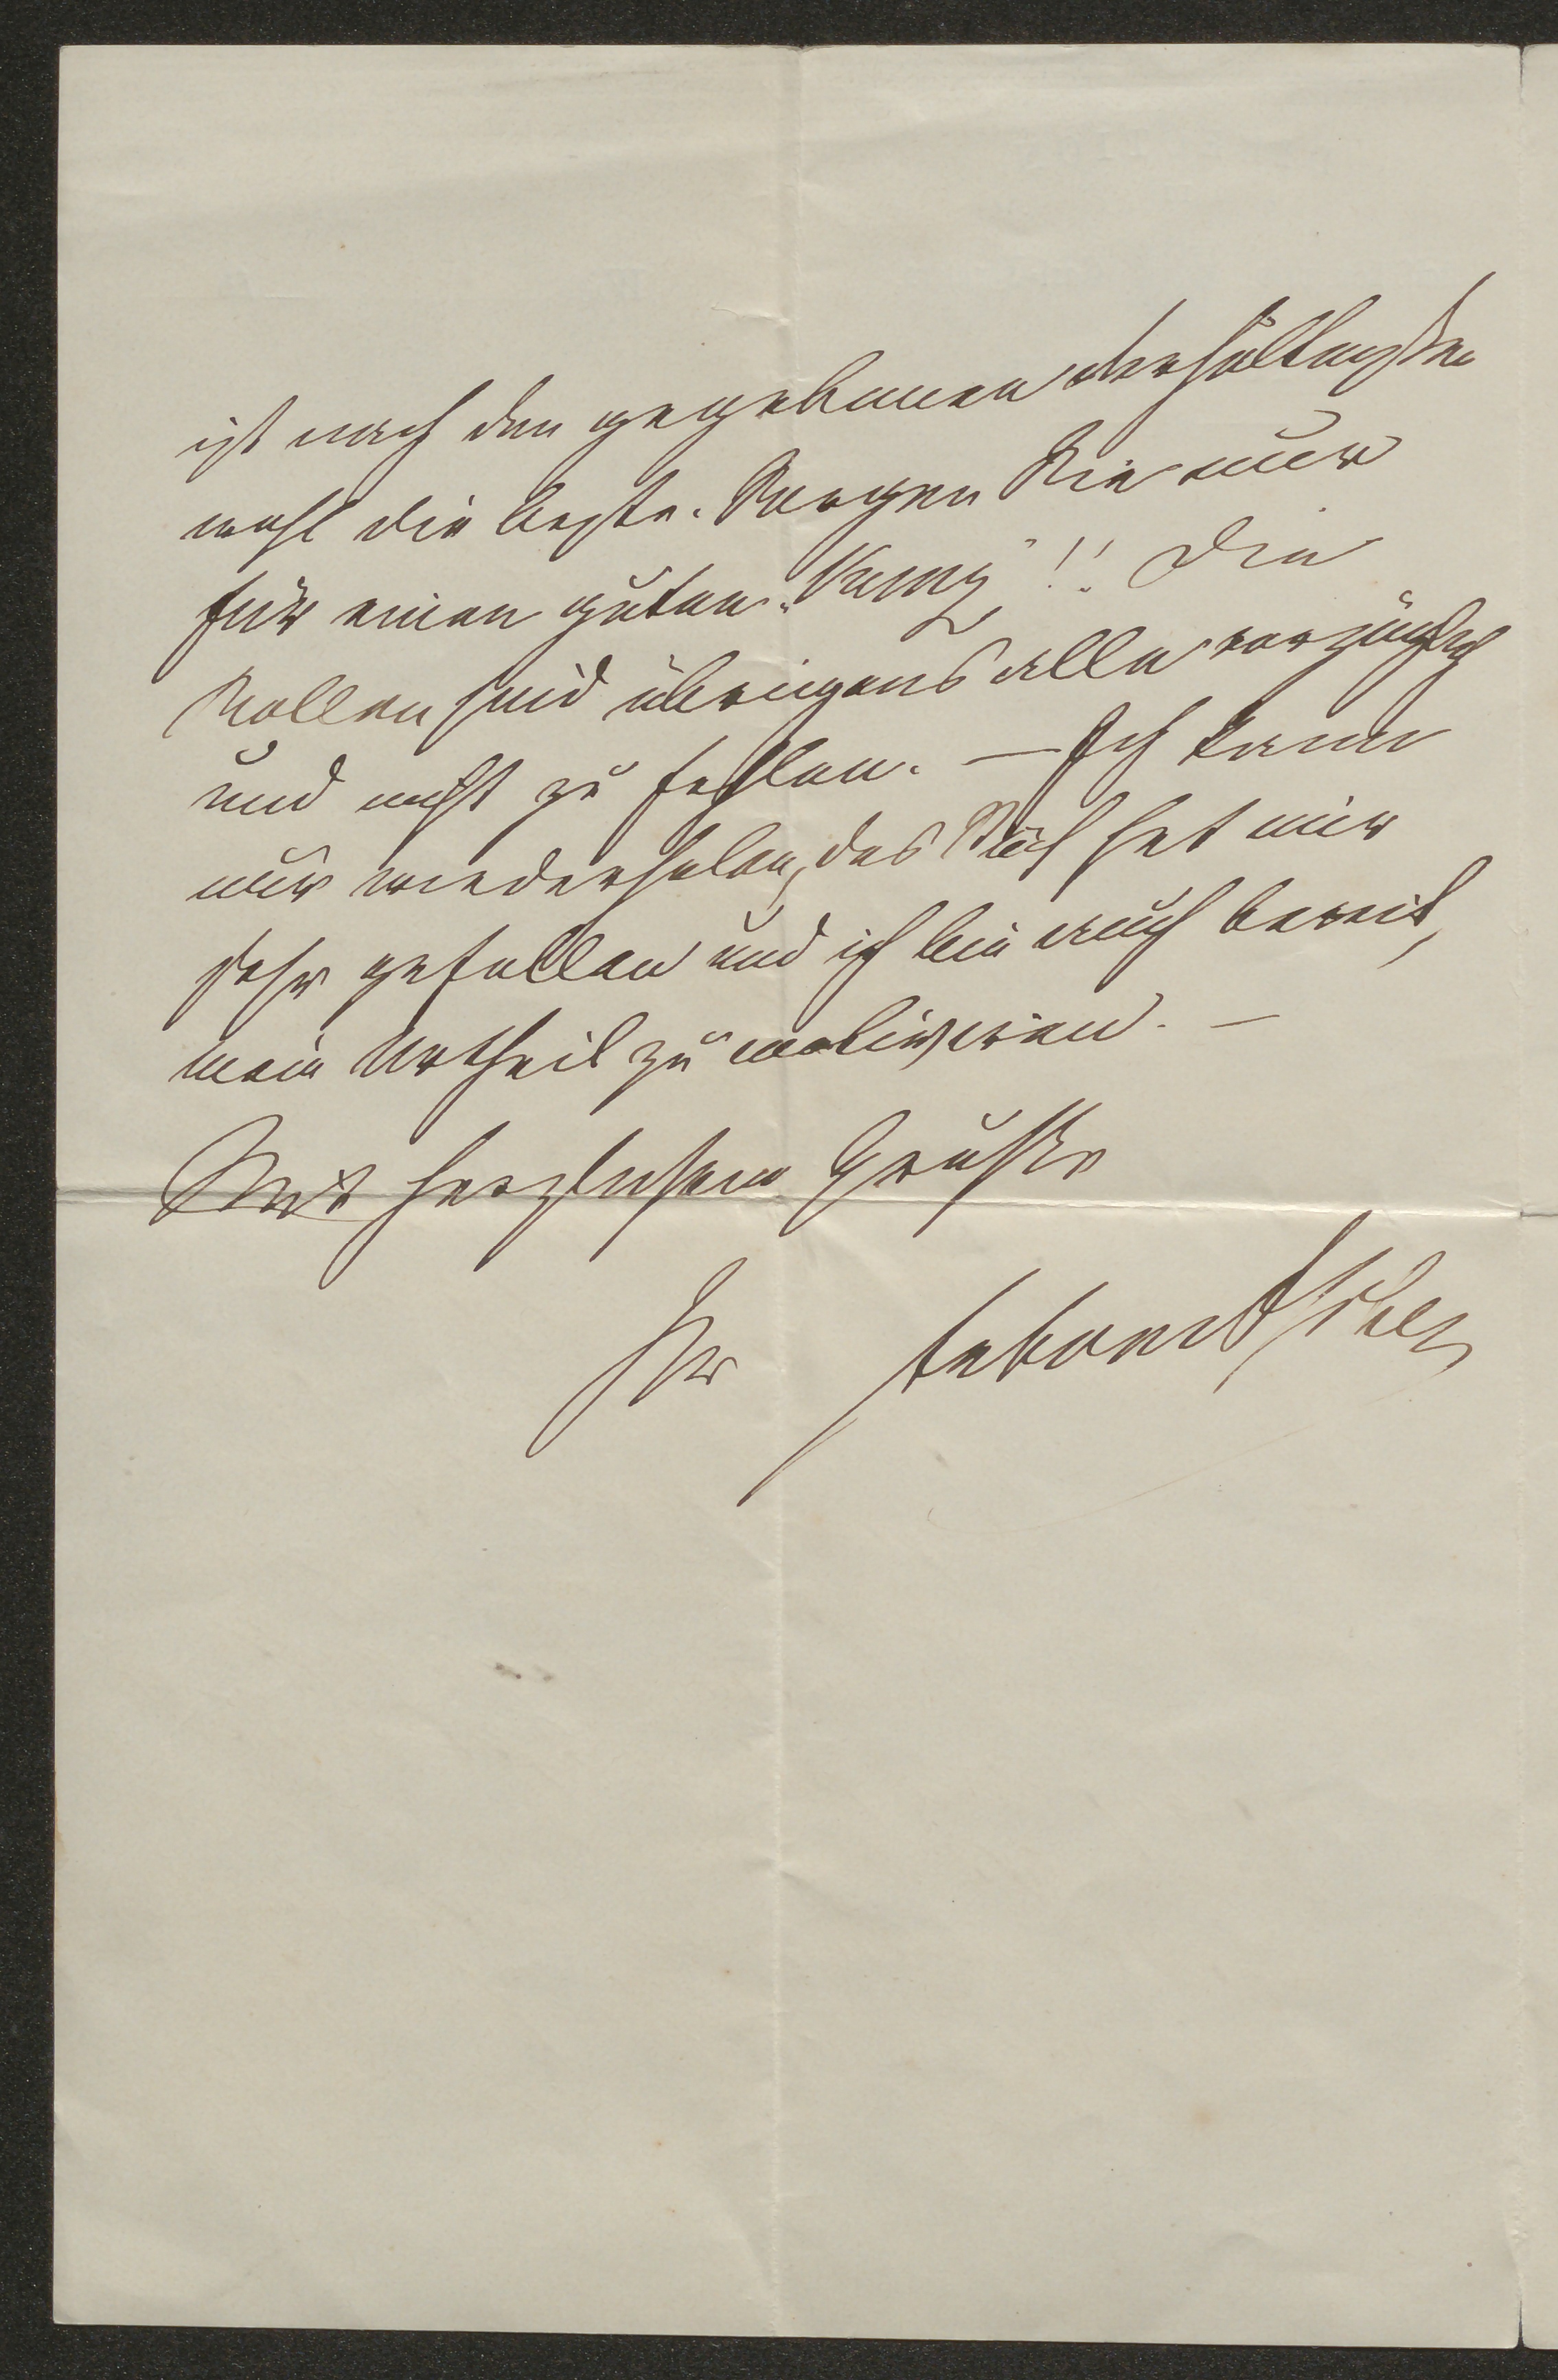 ist nach den gegebenen Verhältnissen
wohl die beste. Sorgen Sie nur
für einen guten „Kunz“!! Die
Rollen sind übrigens alle vorzüglich
und nicht zu fehlen. — Ich kann
nur wiederholen, das Stück hat mir
sehr gefallen und ich bin auch bereit,
mein Urtheil zu motiviren. —
Mit herzlichem Gruße
Ihr